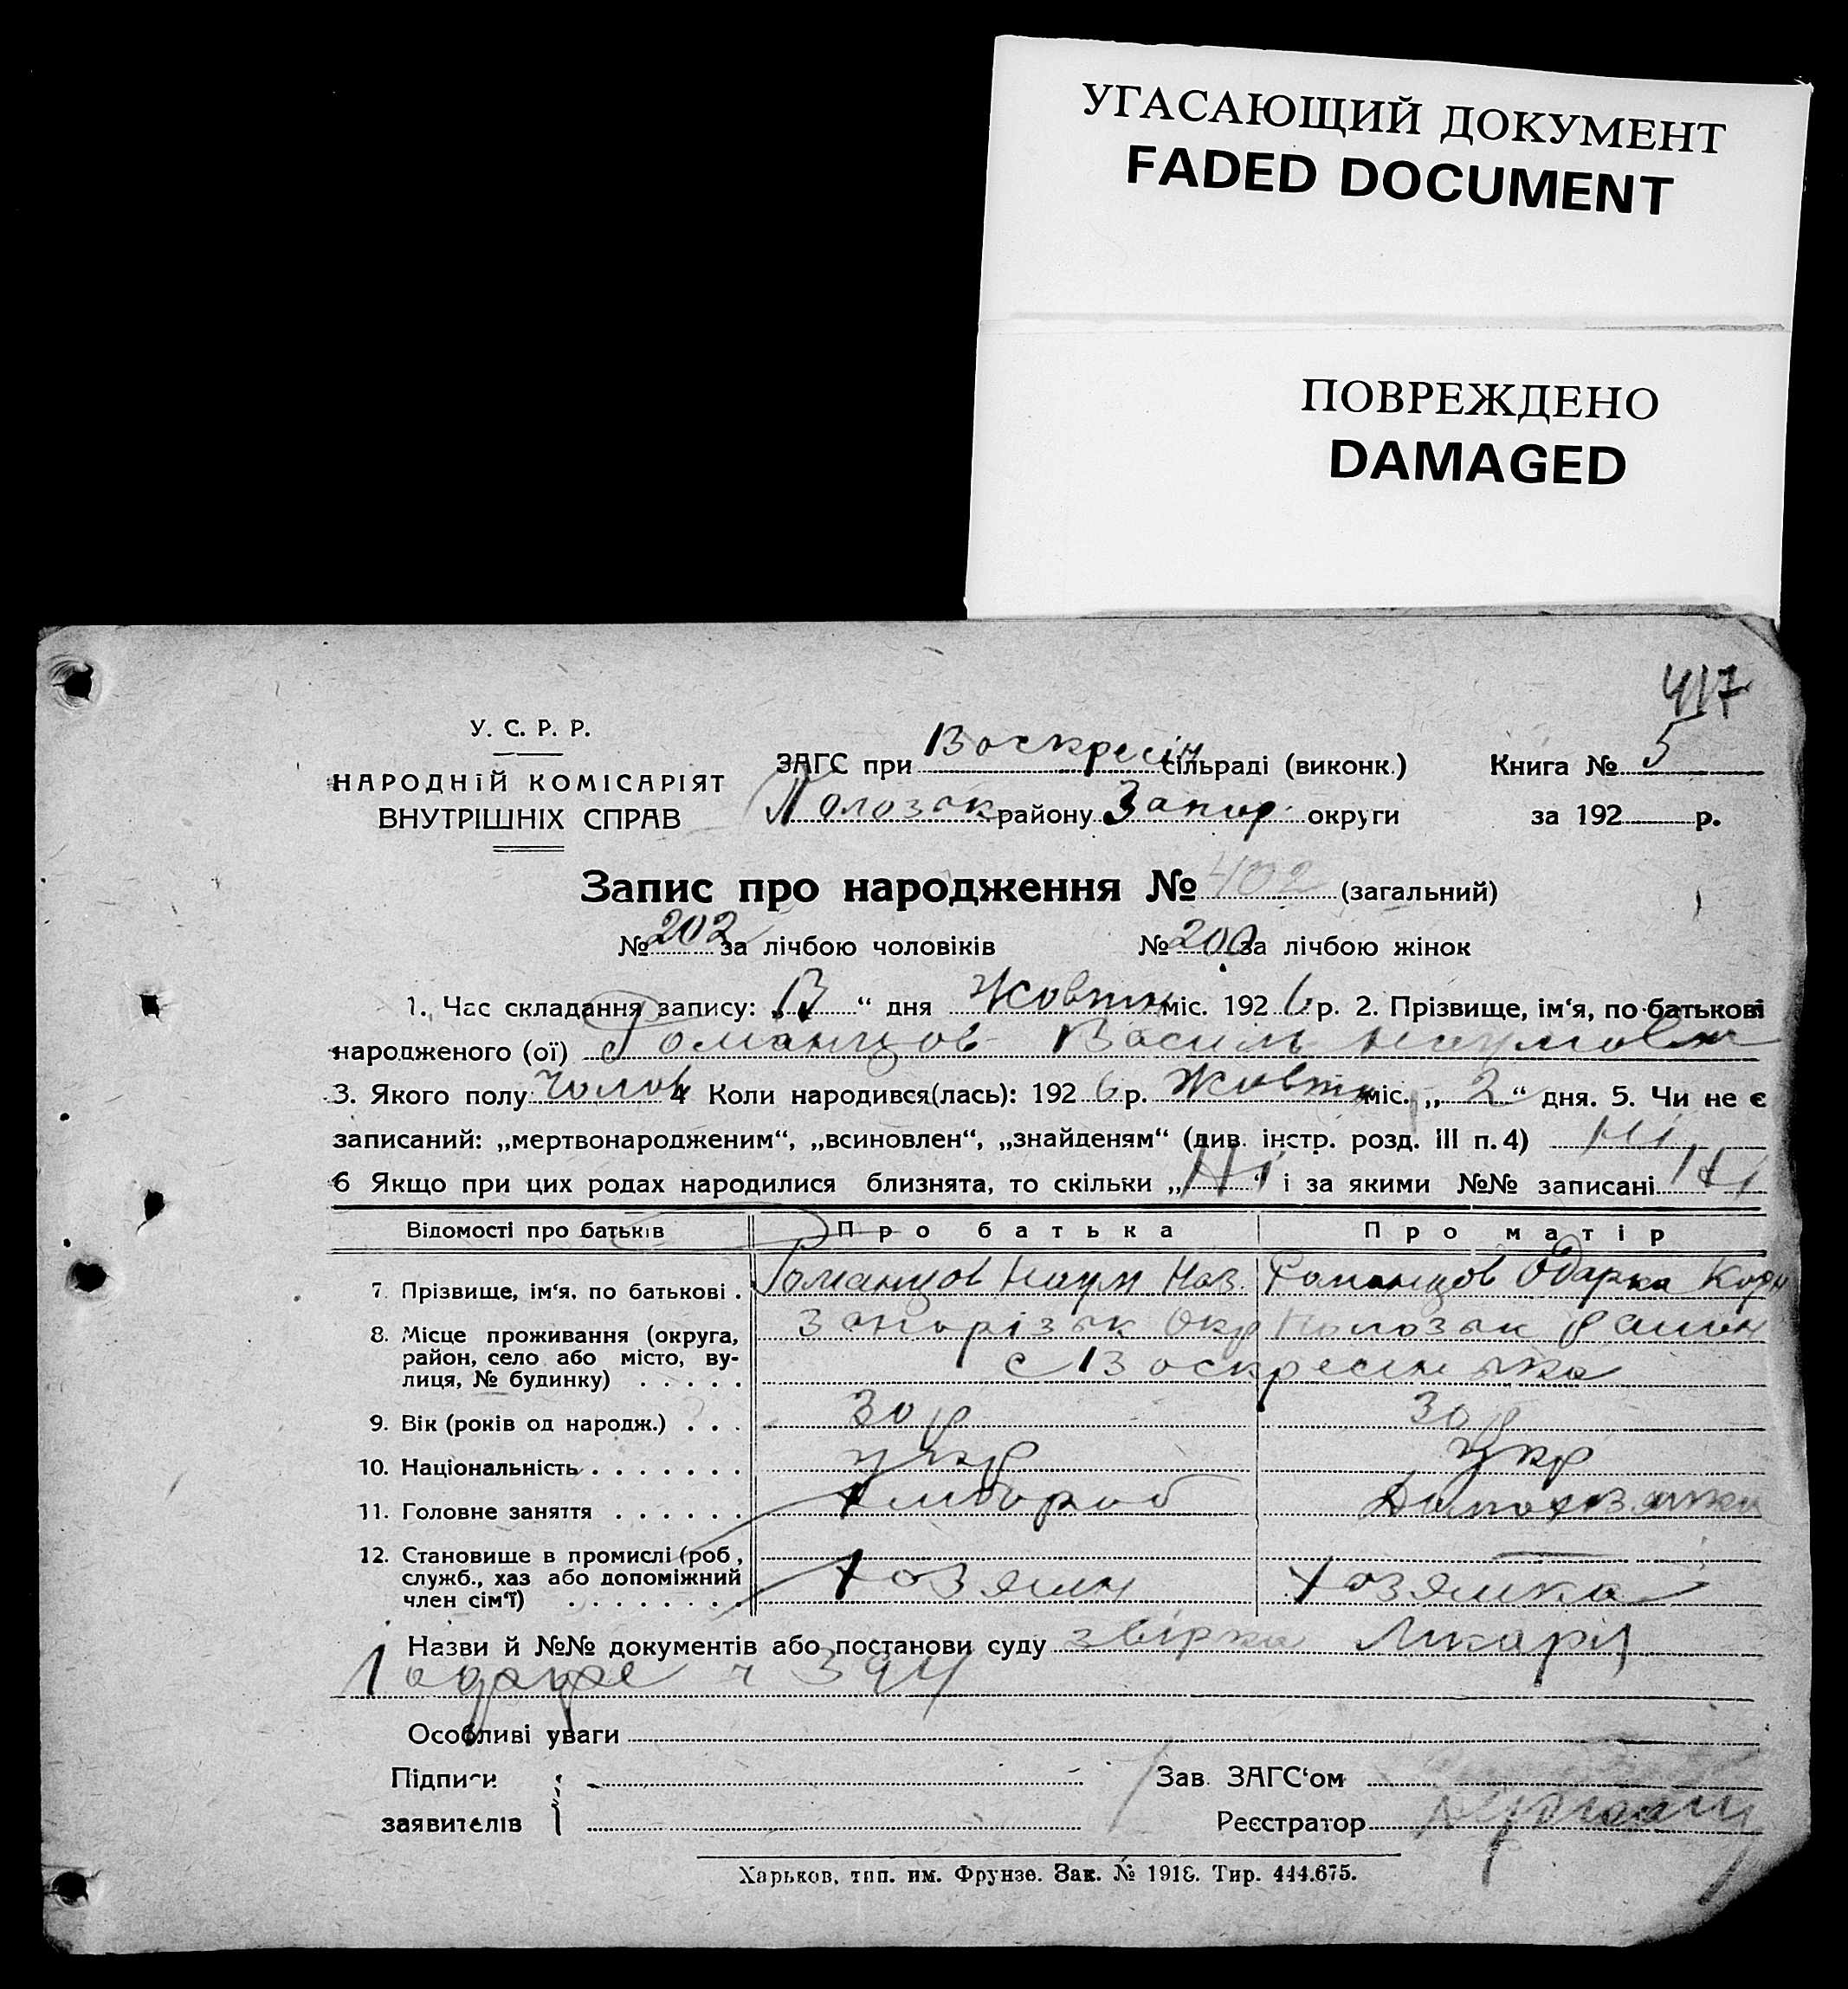 УГАСАЮЩИЙ ДОКУМЕНТ
FADED DOCUMENT
ПОВРЕЖДЕНО
DAMAGED
417
У. С. Р. Р.
НАРОДНІЙ КОМІСАРІЯТ
ВНУТРІШНІХ СПРАВ
ЗАГС при Воскресін сільраді (виконк.)
Полозьк району Запор округи
Книга № 5
за 192 р.
Запис про народження № 402 (загальний)
№ 202 за лічбою чоловіків № 200 за лічбою жінок
1. Час складання запису: „13“ дня Жовтн міс. 1926 р. 2. Прізвище, ім‘я, по батькові
народженого (ої) Романцов Василь Наумов
3. Якого полу Чолов 4 Коли народився(лась): 1926 р. Жовтн міс. „2“ дня. 5. Чи не є
записаний: „мертвонародженим“, „всиновлен“, „знайденям“ (див. інстр. розд. III п. 4) Ні
6 Якщо при цих родах народилися близнята, то скільки „Ні“ і за якими №№ записані Ні
Відомості про батьків Про батька Про матір
7. Прізвище, ім‘я, по батькові . Романцов Наум Наз. Романцов Одарка Корн
8. Місце проживання (округа, Запорізьк Окр Полозьк район
район, село або місто, ву- с Воскресенька
лиця, № будинку) . . . . .
9. Вік (років од народж.) . . . 30 р 30 р
10. Національність . . . . . . . укр Укр
11. Головне заняття . . . . . . Хлібороб Домохозяйка
12. Становище в промислі (роб,
служб., хаз або допоміжний Хозяин Хозяйка
член сім‘ї) . . . . . . . .
Назви й №№ документів або постанови суду звірка Лікаря
394
Особливі уваги
Підписи
заявителів
Зав. ЗАГС‘ом
Реєстратор
Харьков, тип. им. Фрунзе. Зак. № 1918. Тир. 444.675.